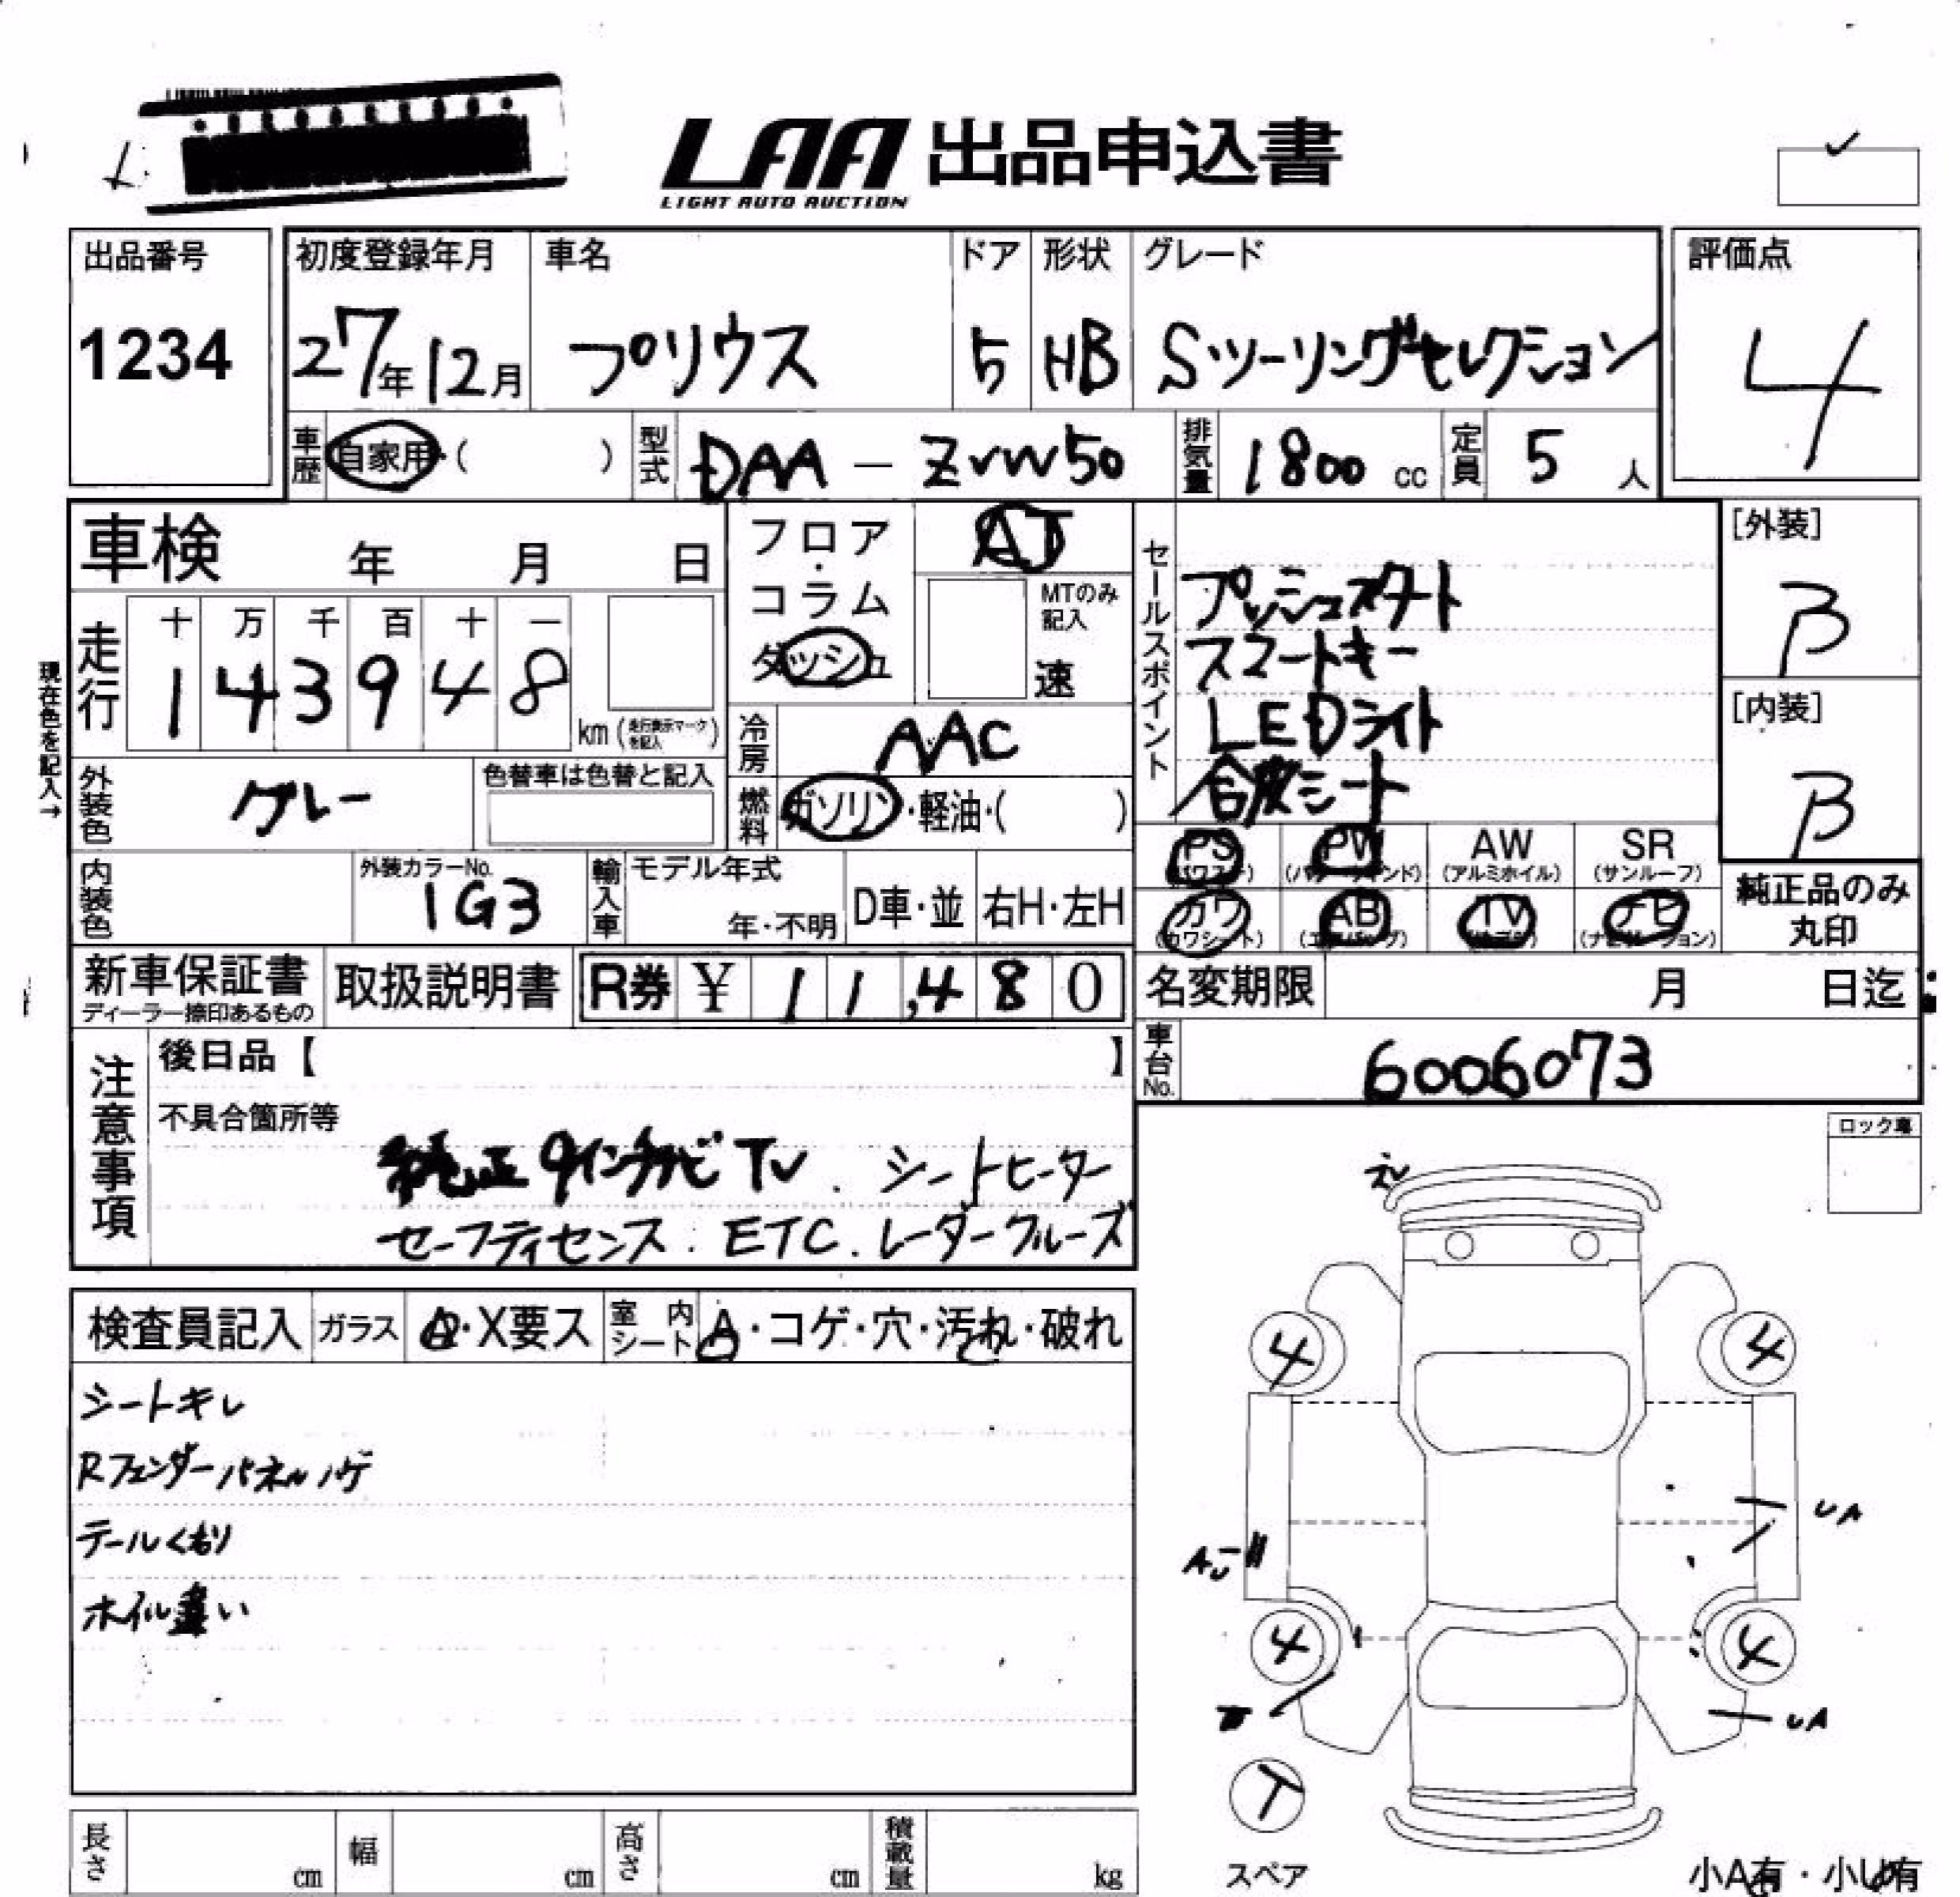 LAA 出品申込書
LIGHT AUTO AUCTION
出品番号
1234
初度登録年月
27年12月
車名
プリウス
ドア
5
形状
HB
グレード
S・ツーリングセレクション
評価点
4
車歴
自家用・( )
型式
DAA — ZVW50
排気量
1800 cc
定員
5 人
車検 年 月 日
フロア・コラム
ダッシュ
AT
MTのみ記入
速
走行
十 万 千 百 十 一
1 4 3 9 4 8
km (走行表示マークを記入)
現在色を記入→
外装色
グレー
色替車は色替と記入
冷房
AAC
燃料
ガソリン・軽油・( )
セールスポイント
プッシュスタート
スマートキー
LEDライト
合皮シート
[外装]
B
[内装]
B
内装色
外装カラーNo.
1G3
輸入車
モデル年式
年・不明
D車・並
右H・左H
PS
(パワステ)
PW
(パワーウインド)
AW
(アルミホイル)
SR
(サンルーフ)
カワ
(カワシート)
AB
(エアバッグ)
TV
ナビ
(ナビゲーション)
純正品のみ
丸印
新車保証書
ディーラー捺印あるもの
取扱説明書
R券 ¥ 11,480
名変期限 月 日迄
車台No.
6006073
注意事項
後日品【 】
不具合箇所等
純正9インチナビTV. シートヒーター
セーフティセンス. ETC. レーダークルーズ
ロック番
検査員記入
ガラス
A・X要ス
室内シート
A・コゲ・穴・汚れ・破れ
シートキレ
Rフェンダーパネルハゲ
テールくもり
ホイル違い
4
4
UA
4
4
UA
T
スペア
小A有・小U有
長さ cm
幅 cm
高さ cm
積載量 kg